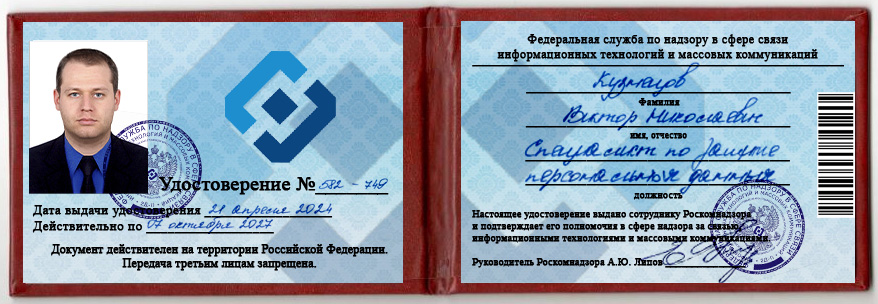 Удостоверение № 582 - 749
Дата выдачи удостоверения 21 апреля 2024
Действительно по 07 октября 2027
Документ действителен на территории Российской Федерации.
Передача третьим лицам запрещена.
Федеральная служба по надзору в сфере связи
информационных технологий и массовых коммуникаций
Кузнецов
Фамилия
Виктор Николаевич
имя, отчество
Специалист по защите
персональных данных
должность
Настоящее удостоверение выдано сотруднику Роскомнадзора
и подтверждает его полномочия в сфере надзора за связью,
информационными технологиями и массовыми коммуникациями
Руководитель Роскомнадзора А.Ю. Липов